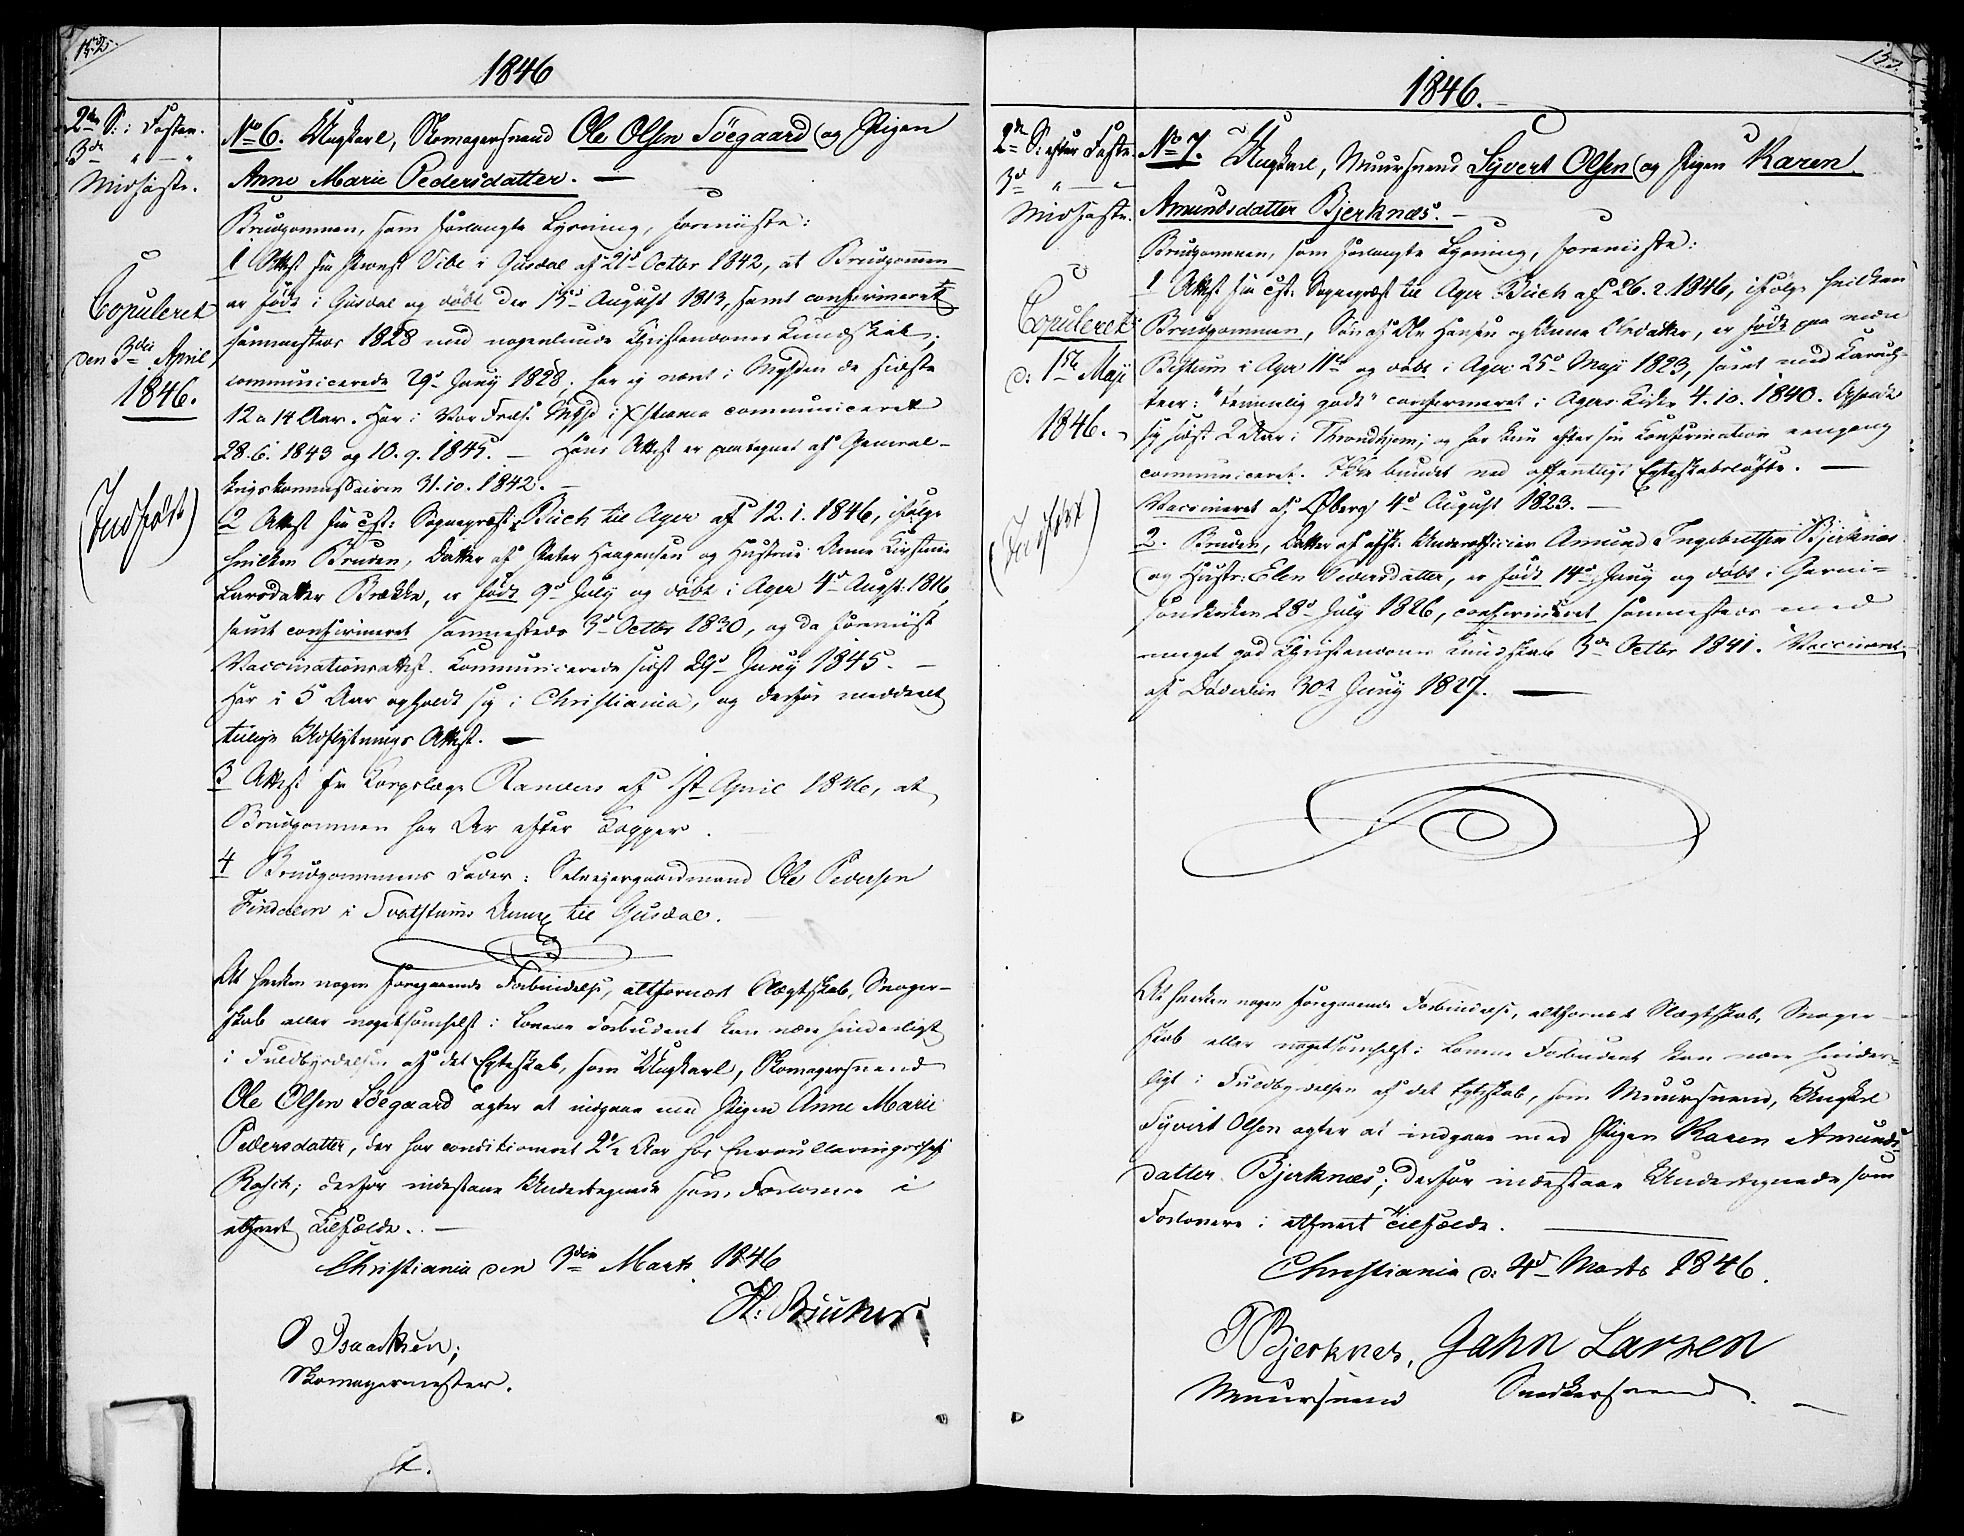 152.
1846
2den S: i Fasten.
3de " — "
Midfaste.
Copuleret
den 3die April
1846.
(Indført)
No 6. Ungkarl, Skomagersvend Ole Olsen Söegaard og Pigen
Anne Marie Pedersdatter. —
Brudgommen, som forlangte Lysning, foreviiste:
1 Attest fra Provst Vibe i Gusdal af 21d Octbr 1842, at Brudgommen
er født i Gusdal og döbt den 15d August 1813, samt confirmeret
sammesteds 1828 med nogenlunde Christendoms Kundskab;
communicerede 29d Juny 1828. har ej været i Bygden de sidste
12 a 14 Aar. Har i Vor Frels: communiceret
28.6.1843 og 10.9.1845. — Hans Attest er paategnet af General-
krigskommissairen 31.10.1842. —
2 Attest fra cst: Sognepræst Büch til Ager af 12.1.1846, ifølge
hvilken Bruden, Datter af Peter Haagensen og Hustrue Anne Kirstine
Larsdatter Brække, er født 9d July og döbt i Ager 4d Augst: 1816,
samt confirmeret sammesteds 3d Octbr 1830, og da foreviist
Vaccinationsattest. Kommunicerede sidst 29d Juny 1845. —
Har i 5 Aar opholdt sig i Christiania, og derfor meddeelt
Udflytnings Attest. —
3 Attest fra Korpslæge Randers af 1st April 1846, at
Brudgommen har Ar efter Kopper.
4 Brudgommens Fader: Selveyergaardmand Ole Pedersen
i Annex til Gusdal.
At hverken nogen foregaaende Forbindelse, altfornær Slægtskab, Svoger-
skab eller nogetsomhelst i Lovene Forbudent kan være hinderligt
i Fuldbyrdelsen af det Egteskab, som Ungkarl, Skomagersvend
Ole Olsen Söegaard agter at indgaae med Pigen Anne Marie
Pedersdatter, der har conditioneret 2½ Aar hos
Rasch; derfor indestaae Undertegnede som Forlovere i
ethvert Tilfælde. —
Christiania den 3die Marts 1846
H: Bruker
O Isaachsen,
Skomagermester.
153.
1846.
2de S: efter Faste.
3d " — "
Midfaste.
Copuleret
d: 1ste Maji
1846.
(Indført)
No 7. Ungkarl, Muursvend Syvert Olsen og Pigen Karen
Amundsdatter Bjerknæs. —
Brudgommen, som forlangte Lysning, foreviiste:
1 Attest fra cst: Sognepræst til Ager Büch af 26.2.1846, ifølge hvilken
Brudgommen, Søn af Ole Hansen og Anne Olsdatter, er født paa
i Ager 11d og döbt i Ager 25d Maji 1823, samt med Karac-
teer: "temmelig godt" confirmeret i Agers Kirke 4.10.1840. Opholdt
sig sidst 2 Aar i Throndhjem; og har kun efter sin Confirmation eengang
communiceret. Ikke bundet ved offentligt Egteskabsløfte. —
Vaccineret af Øberg 4d August 1823. —
2. Bruden, Datter af afsk: Underofficier Amund Ingebretsen Bjerknæs
og Hustr: Elen Pedersdatter, er født 14d Juny og döbt i Garni-
sonskirken 28d July 1826, confirmeret sammesteds med
meget god Christendoms Kundskab 3d Octbr 1841. Vaccineret
af Döderlein 30d Juny 1827. —
At hverken nogen foregaaende Forbindelse, altfornær Slægtskab, Svoger-
skab eller nogetsomhelst i Lovene Forbudent kan være hinder-
ligt i Fuldbyrdelsen af det Egteskab, som Muursvend, Ungkarl
Syvert Olsen agter at indgaae med Pigen Karen Amunds-
datter Bjerknæs; derfor indestaae Undertegnede som
Forlovere i ethvert Tilfælde. —
Christiania d: 4d Marts 1846.
Bjerknes, Jahn Larsen
Muursvend Snedkersvend.